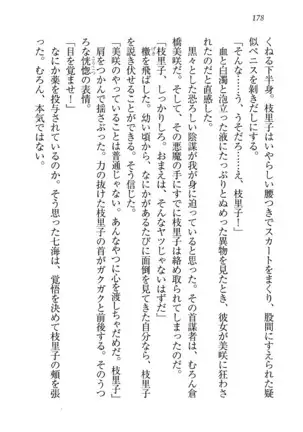 178
くねる下半身。枝里子はいやらしい腰つきでスカートをまくり、股間にすえられた疑
似ペニスを剥きだしにする。
「そんな……う、うそだろ……え、枝里子！」
血と白濁と泡立った液にたっぷりとぬめった異物を見たとき、彼女が美咲に狂わさ
れたのだと直感した。
黒々とした恐ろしい陰謀が我が身に迫りつつあったことを知る。首謀者は、むろん倉
橋美咲だ。そして、その悪魔の手にすでに枝里子は絡め取られてしまったのだ。
「枝里子、しっかりしろ。おまえは、そんなヤツじゃないはずだ」
檄を飛ばした。幼い頃から、なにかがあるたびに面倒を見てきた自分なら、枝里子
を説き伏せることができると思った。
「美咲のやっていることは普通じゃない。あんなやつに心を渡しちゃだめだ。枝里子」
肩をつかんで揺さぶった。力の抜けた枝里子の首がガクガクと前後する。そのうつ
ろな恍惚の表情。
「目を覚ませ！」
なにか薬を投与されているのか。そう思った七海は、覚悟を決めて枝里子の頬を張
った。むろん、本気ではない。